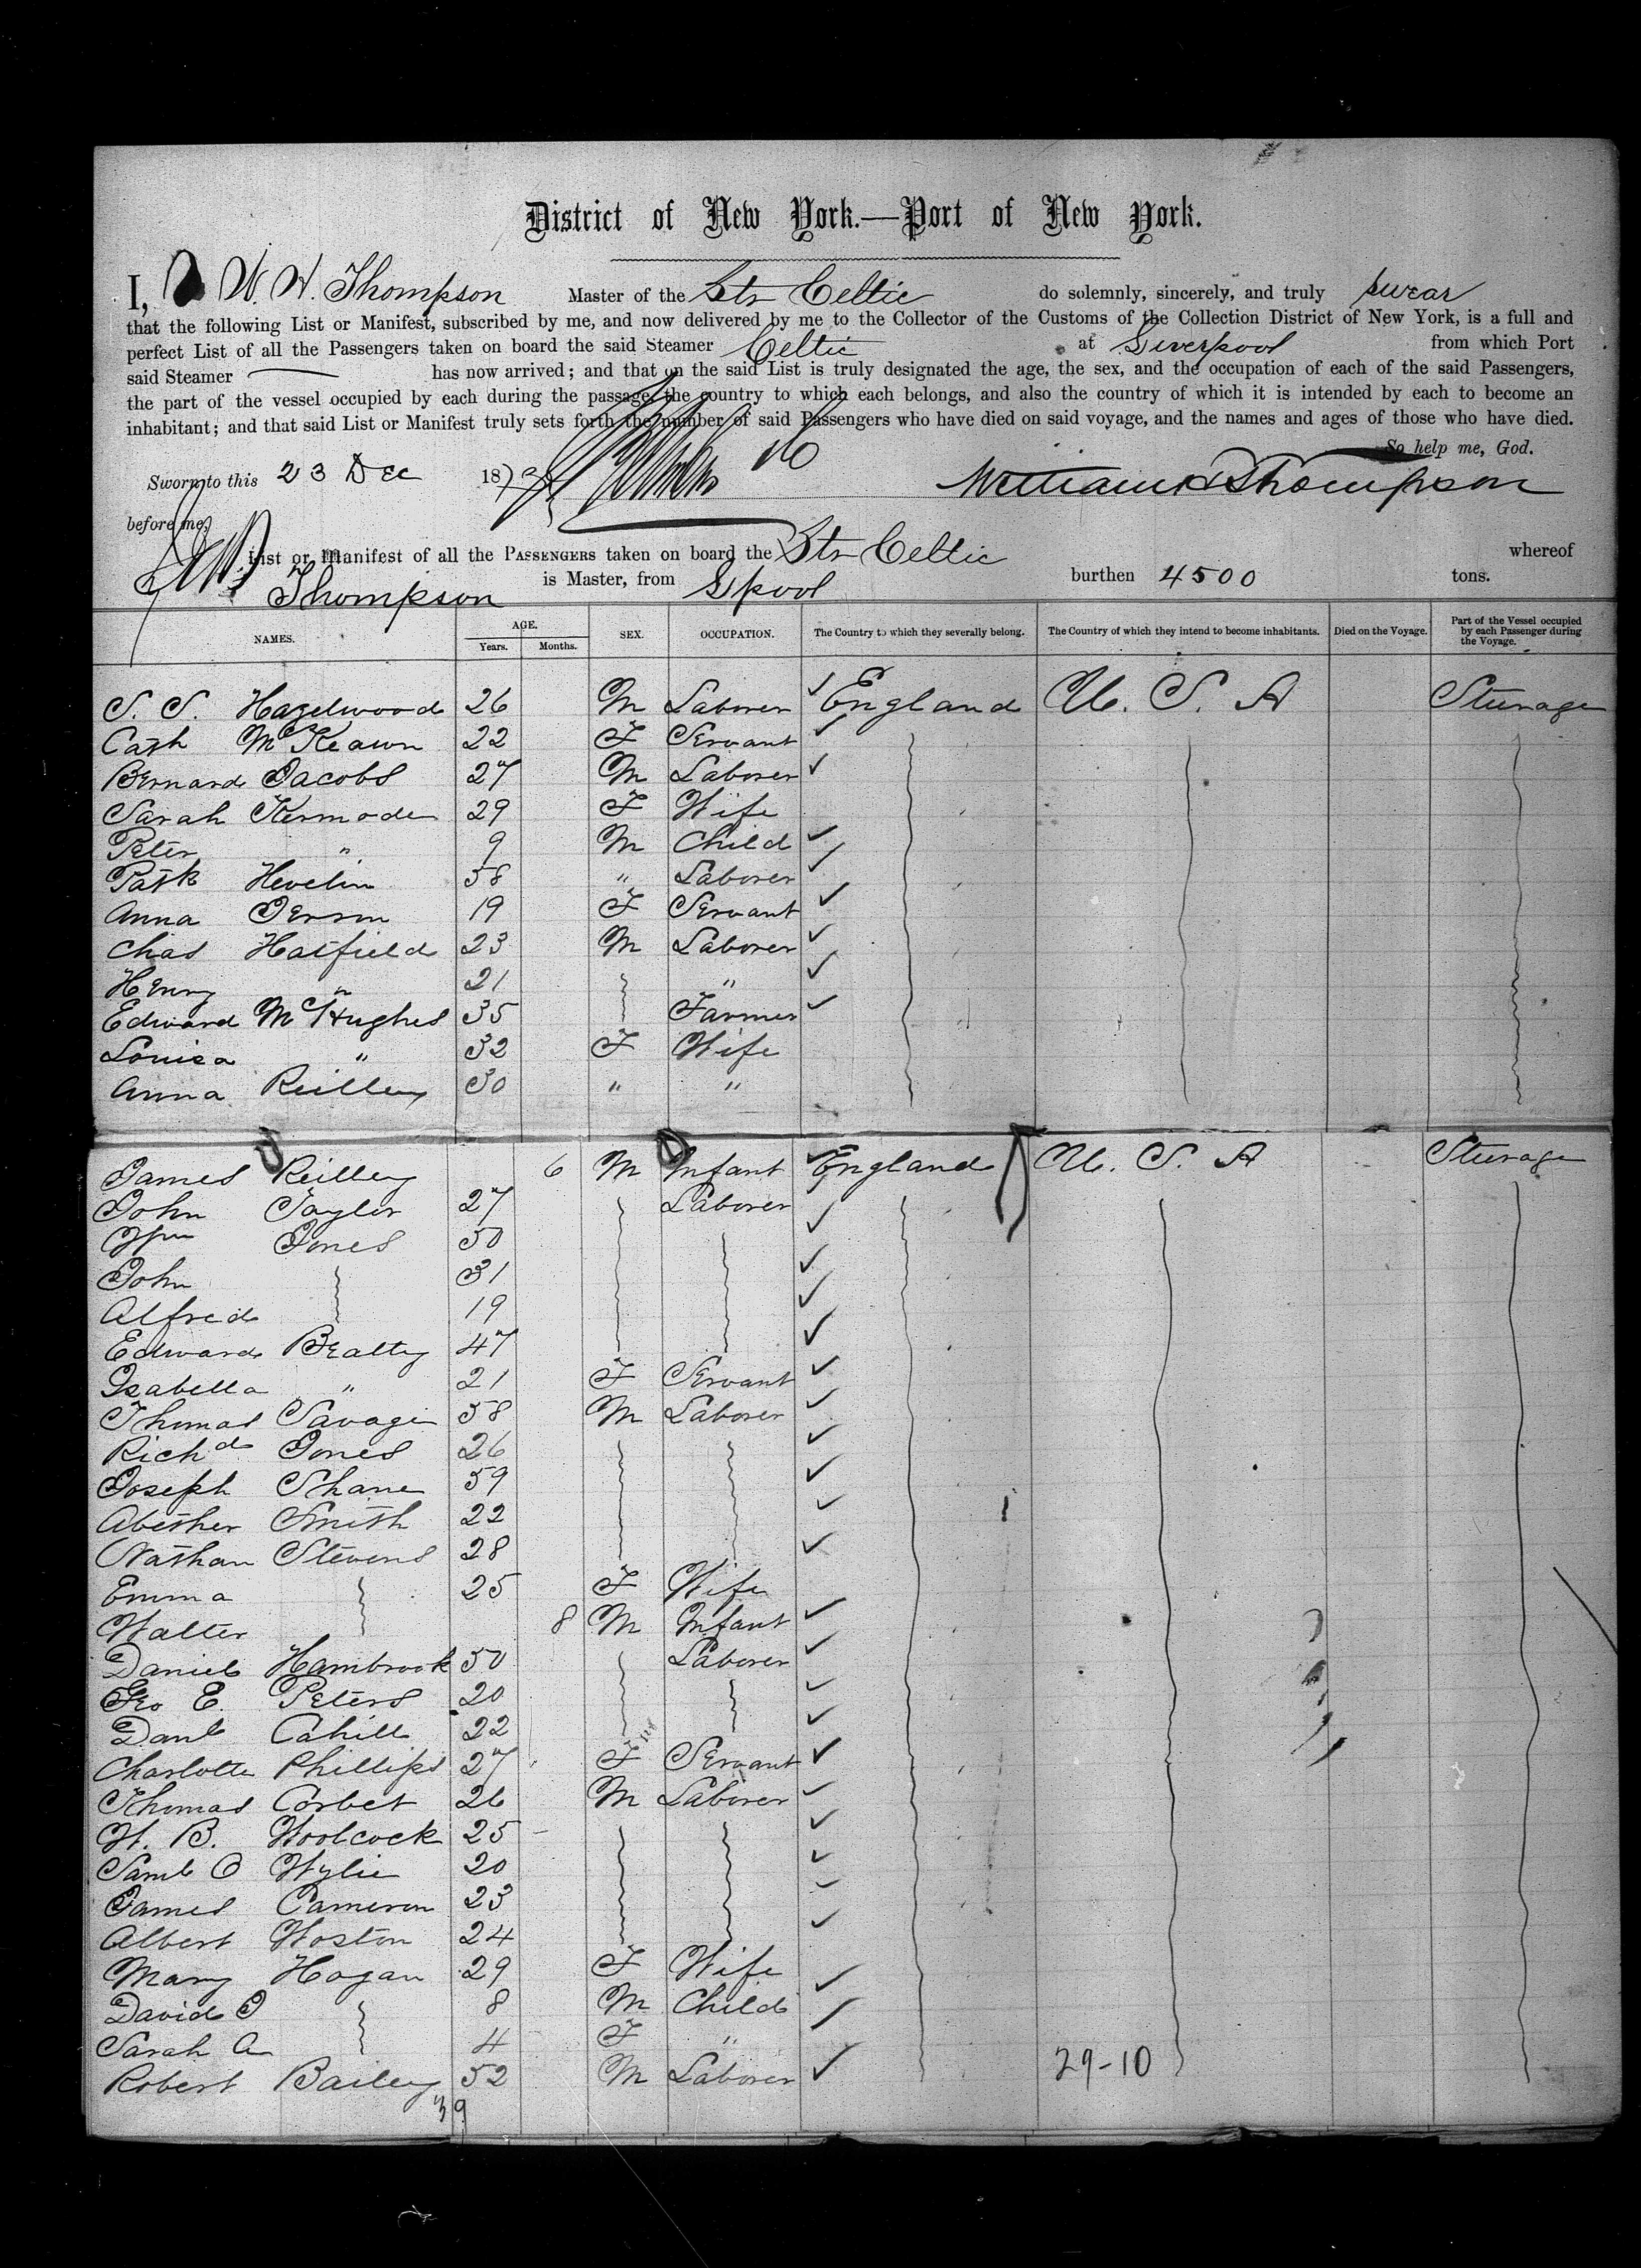 District of New York.—Port of New York.
I, W. H. Thompson Master of the Str Celtic do solemnly, sincerely, and truly swear
that the following List or Manifest, subscribed by me, and now delivered by me to the Collector of the Customs of the Collection District of New York, is a full and
perfect List of all the Passengers taken on board the said Steamer Celtic at Liverpool from which Port
said Steamer has now arrived; and that on the said List is truly designated the age, the sex, and the occupation of each of the said Passengers,
the part of the vessel occupied by each during the passage, the country to which each belongs, and also the country of which it is intended by each to become an
inhabitant; and that said List or Manifest truly sets forth the number of said Passengers who have died on said voyage, and the names and ages of those who have died.
So help me, God.
Sworn to this 23 Dec 187 William H Thompson
before me,
List or Manifest of all the PASSENGERS taken on board the Str Celtic whereof
Thompson is Master, from Lpool burthen 4500 tons.
NAMES. AGE. Years. Months. SEX. OCCUPATION. The Country to which they severally belong. The Country of which they intend to become inhabitants. Died on the Voyage. Part of the Vessel occupied by each Passenger during the Voyage.
S. S. Hazelwood 26 M Laborer England U. S. A Steerage
Cath McKeawn 22 F Servant
Bernard Jacobs 27 M Laborer
Sarah Kermode 29 F Wife
Peter " 9 M Child
Patk Hevelin 58 " Laborer
Anna 19 F Servant
Chas Hatfield 23 M Laborer
Henry " 21 "
Edward McHughes 35 Farmer
Louisa " 32 F Wife
Anna Reilley 30 " "
James Reilley 6 M Infant England U. S. A Steerage
John Taylor 27 Laborer
Wm Jones 50
John 31
Alfred 19
Edward Bealty 47
Isabella " 21 F Servant
Thomas Savage 58 M Laborer
Richd Jones 26
Joseph Shane 59
Abether Smith 22
Nathan Stevens 28
Emma 25 F Wife
Walter 8 M Infant
Daniel Hambrook 50 Laborer
Geo E. Peters 20
Danl Cahill 22
Charlotte Phillips 27 F Servant
Thomas Corbet 26 M Laborer
W. B. Woolcock 25
Saml O Wylie 20
James Cameron 23
Albert Woston 24
Mary Hogan 29 F Wife
David J 8 M Child
Sarah A 4 F "
Robert Bailey 52 M Laborer 29-10
39